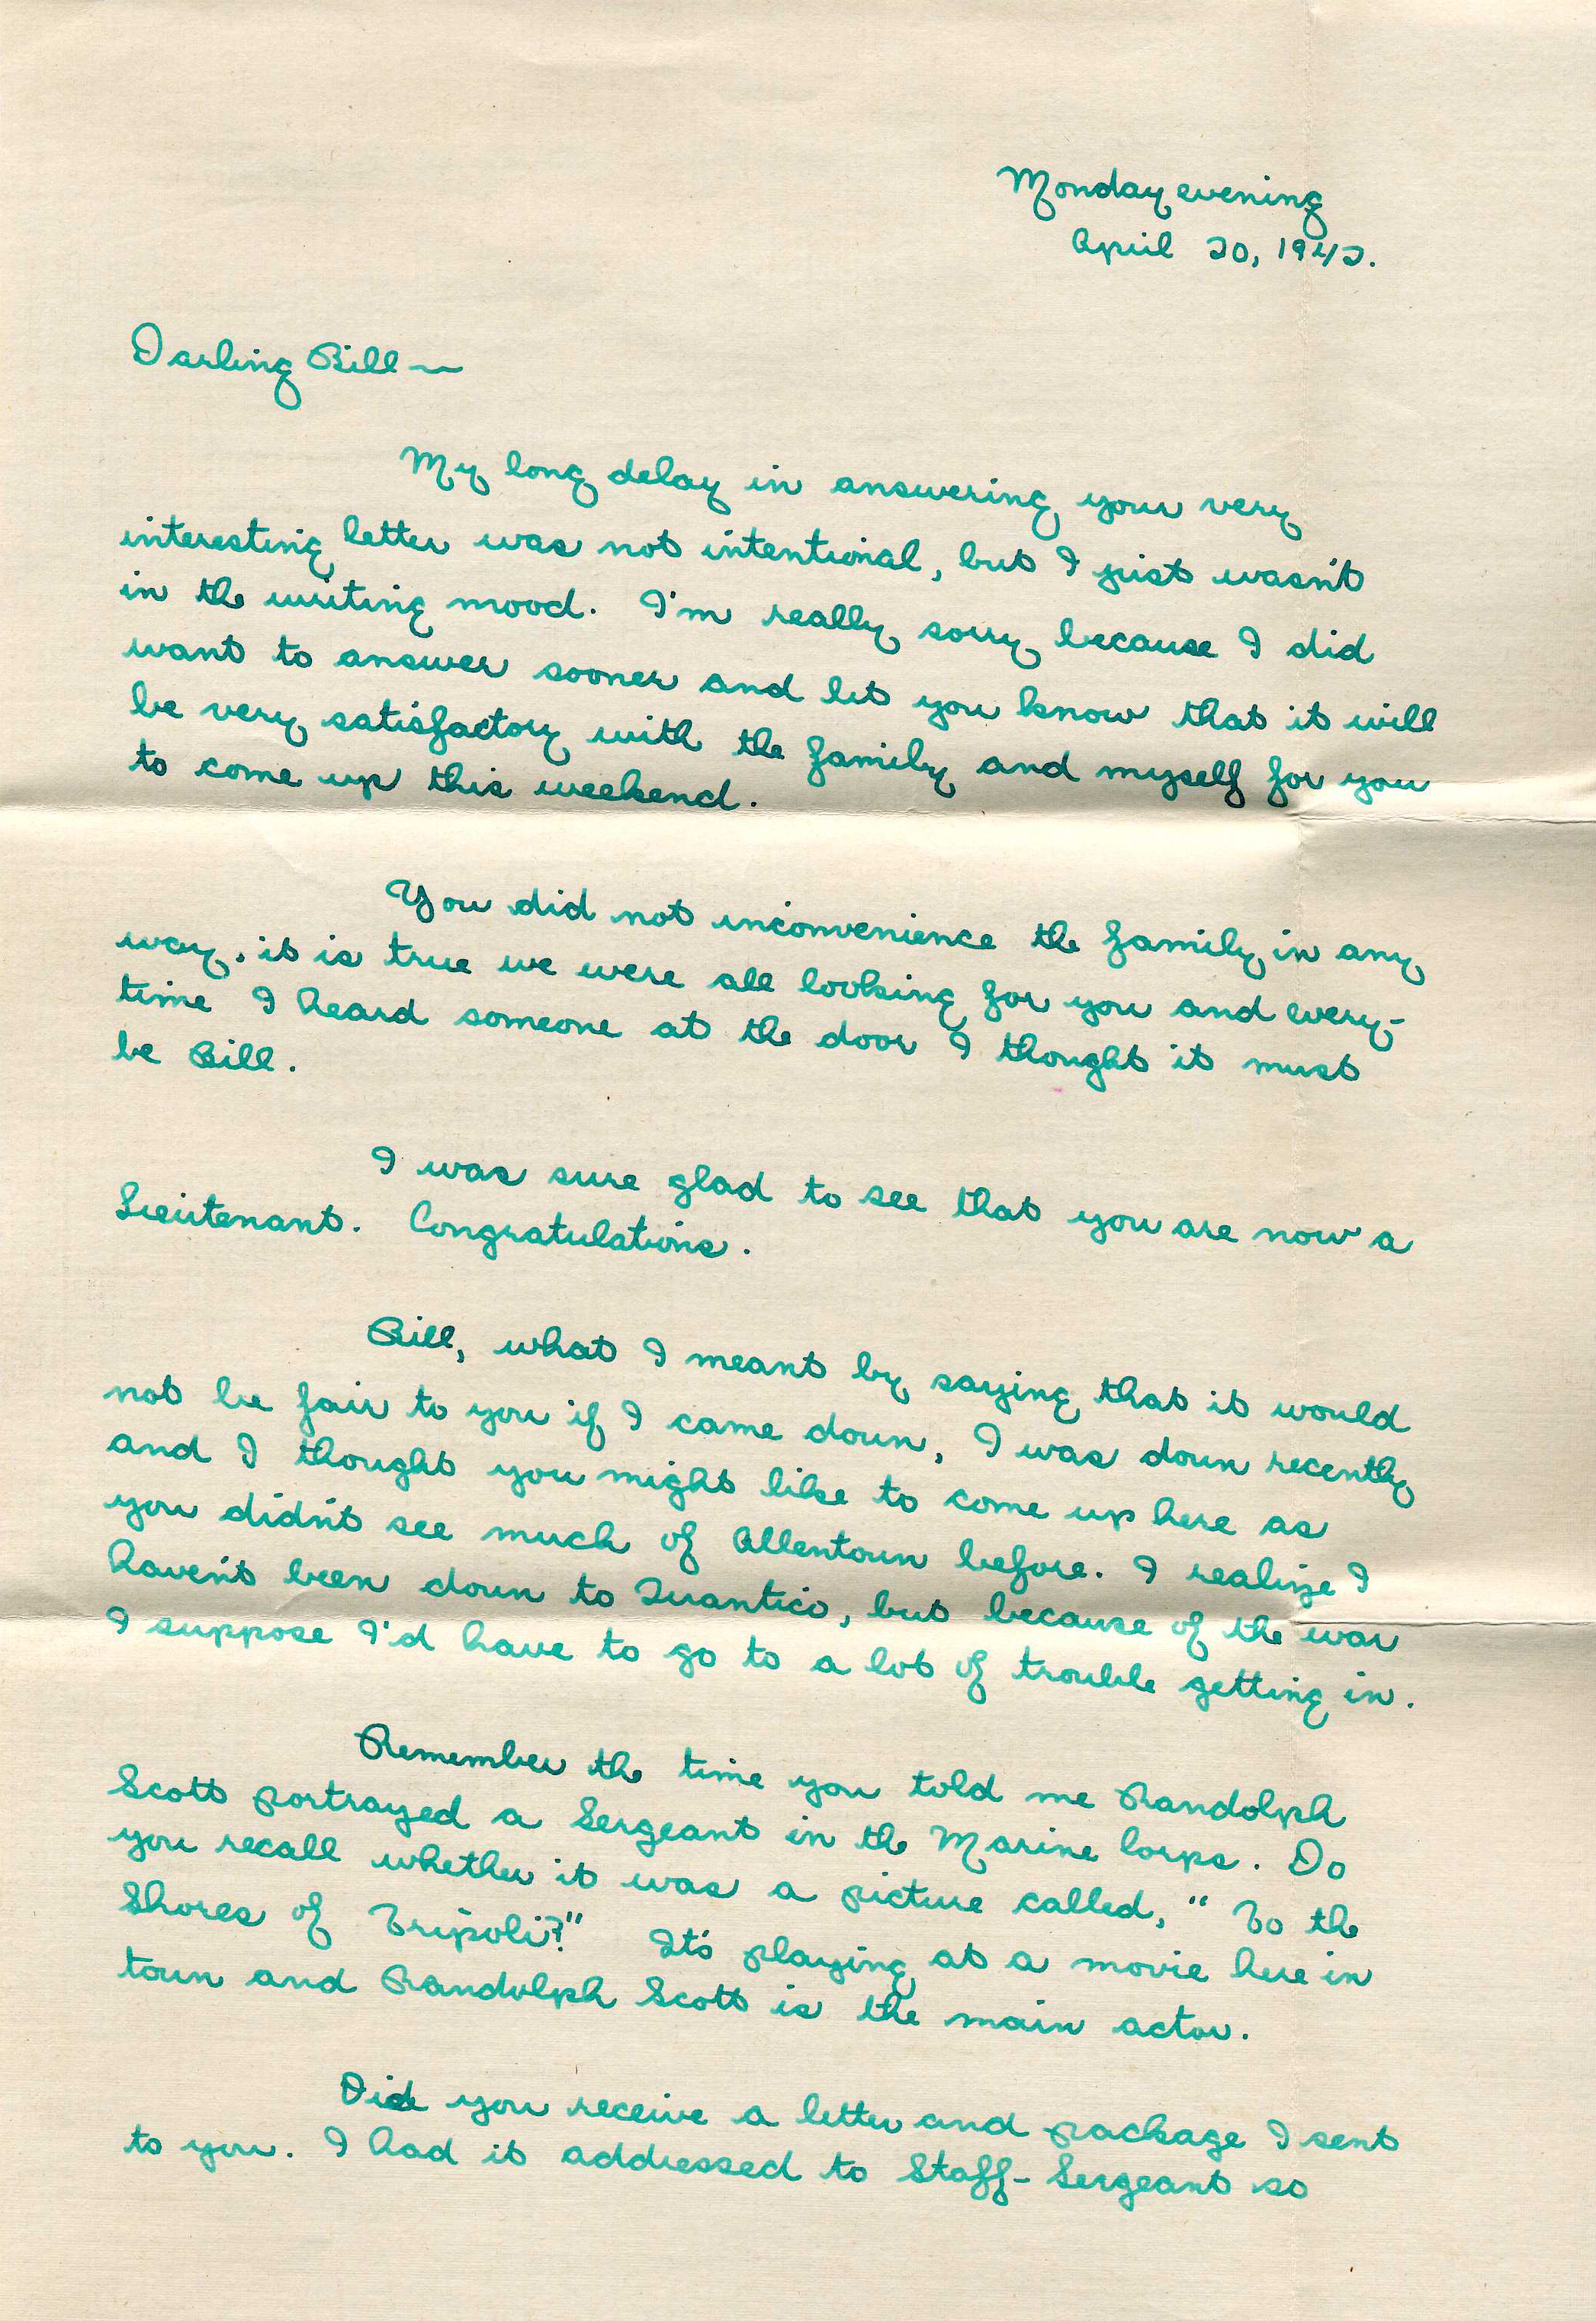 Monday evening
April 20, 1942.
Darling Bill —
My long delay in answering your very
interesting letter was not intentional, but I just wasn't
in the writing mood. I'm really sorry because I did
want to answer sooner and let you know that it will
be very satisfactory with the family and myself for you
to come up this weekend.
You did not inconvenience the family in any
way, it is true we were all looking for you and every-
time I heard someone at the door I thought it must
be Bill.
I was sure glad to see that you are now a
Lieutenant. Congratulations.
Bill, what I meant by saying that it would
not be fair to you if I came down, I was down recently
and I thought you might like to come up here as
you didn't see much of Allentown before. I realize I
haven't been down to Quantico, but because of the war
I suppose I'd have to go to a lot of trouble getting in.
Remember the time you told me Randolph
Scott portrayed a Sergeant in the Marine Corps. Do
you recall whether it was a picture called, "To the
Shores of Tripoli?" It's playing at a movie here in
town and Randolph Scott is the main actor.
Did you receive a letter and package I sent
to you. I had it addressed to Staff-Sergeant so